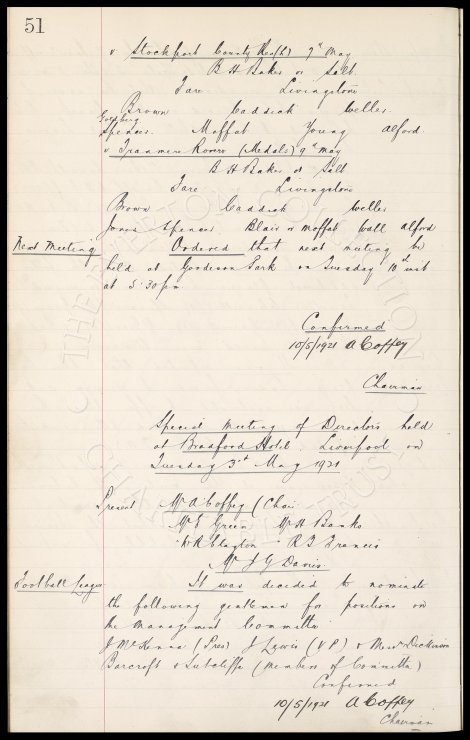 51
v Stockport County Res(h) 7th May
B H Baker or Salt.
Fare Livingstone
Brown Caddick Weller
Goldberg
Spencer. Moffat Young Alford
v Tranmere Rovers (Medals) 9th May
B H Baker or Salt
Fare Livingstone
Brown Caddick Weller
Jones Spencer. Blair or Moffat Wall Alford
Next Meeting Ordered that next meeting be
held at Goodison Park on Tuesday 10th inst
at 5.30 pm.
Confirmed
10/5/1921 A Coffey
Chairman
Special Meeting of Directors held
at Bradford Hotel. Liverpool on
Tuesday 3rd May 1921
Present Mr A Coffey (Chair
Mr E Green Mr H Banks
" W R Clayton " R T Francis
Mr J G Davies.
Football League It was decided to nominate
the following gentlemen for positions on
the Management Committee
J McKenna (Pres) J Lewis (V P) & Messrs Dickinson
Barcroft & Sutcliffe (Members of Committee)
Confirmed
10/5/1921 A Coffey
Chairman